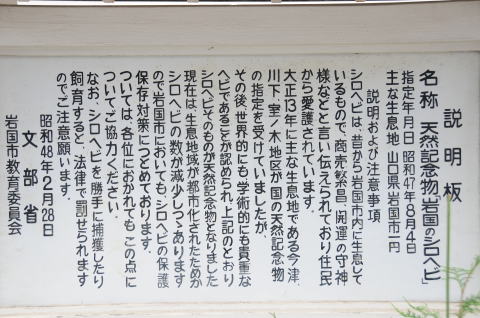 説明板
名称 天然記念物「岩国のシロヘビ」
指定年月日 昭和47年8月4日
主な生息地 山口県岩国市一円
説明および注意事項
シロヘビは、昔から岩国市内に生息して
いるもので、商売繁昌、開運の守神
様などと言い伝えられており住民
から愛護されています。
大正13年に主な生息地である今津、
川下、室ノ木地区が国の天然記念物
の指定を受けていましたが、
その後、世界的にも学術的にも貴重な
ヘビであることが認められ、上記のとおり
シロヘビそのものが天然記念物となりました
現在は、生息地域が都市化されたためか
シロヘビの数が減少しつゝあります
ので岩国市においても、シロヘビの保護
保存対策につとめております。
ついては、各位におかれても この点に
ついてご協力ください。
なお、シロヘビを勝手に捕獲したり
飼育すると、法律で罰せられます
のでご注意願います。
昭和48年2月28日
文部省
岩国市教育委員会